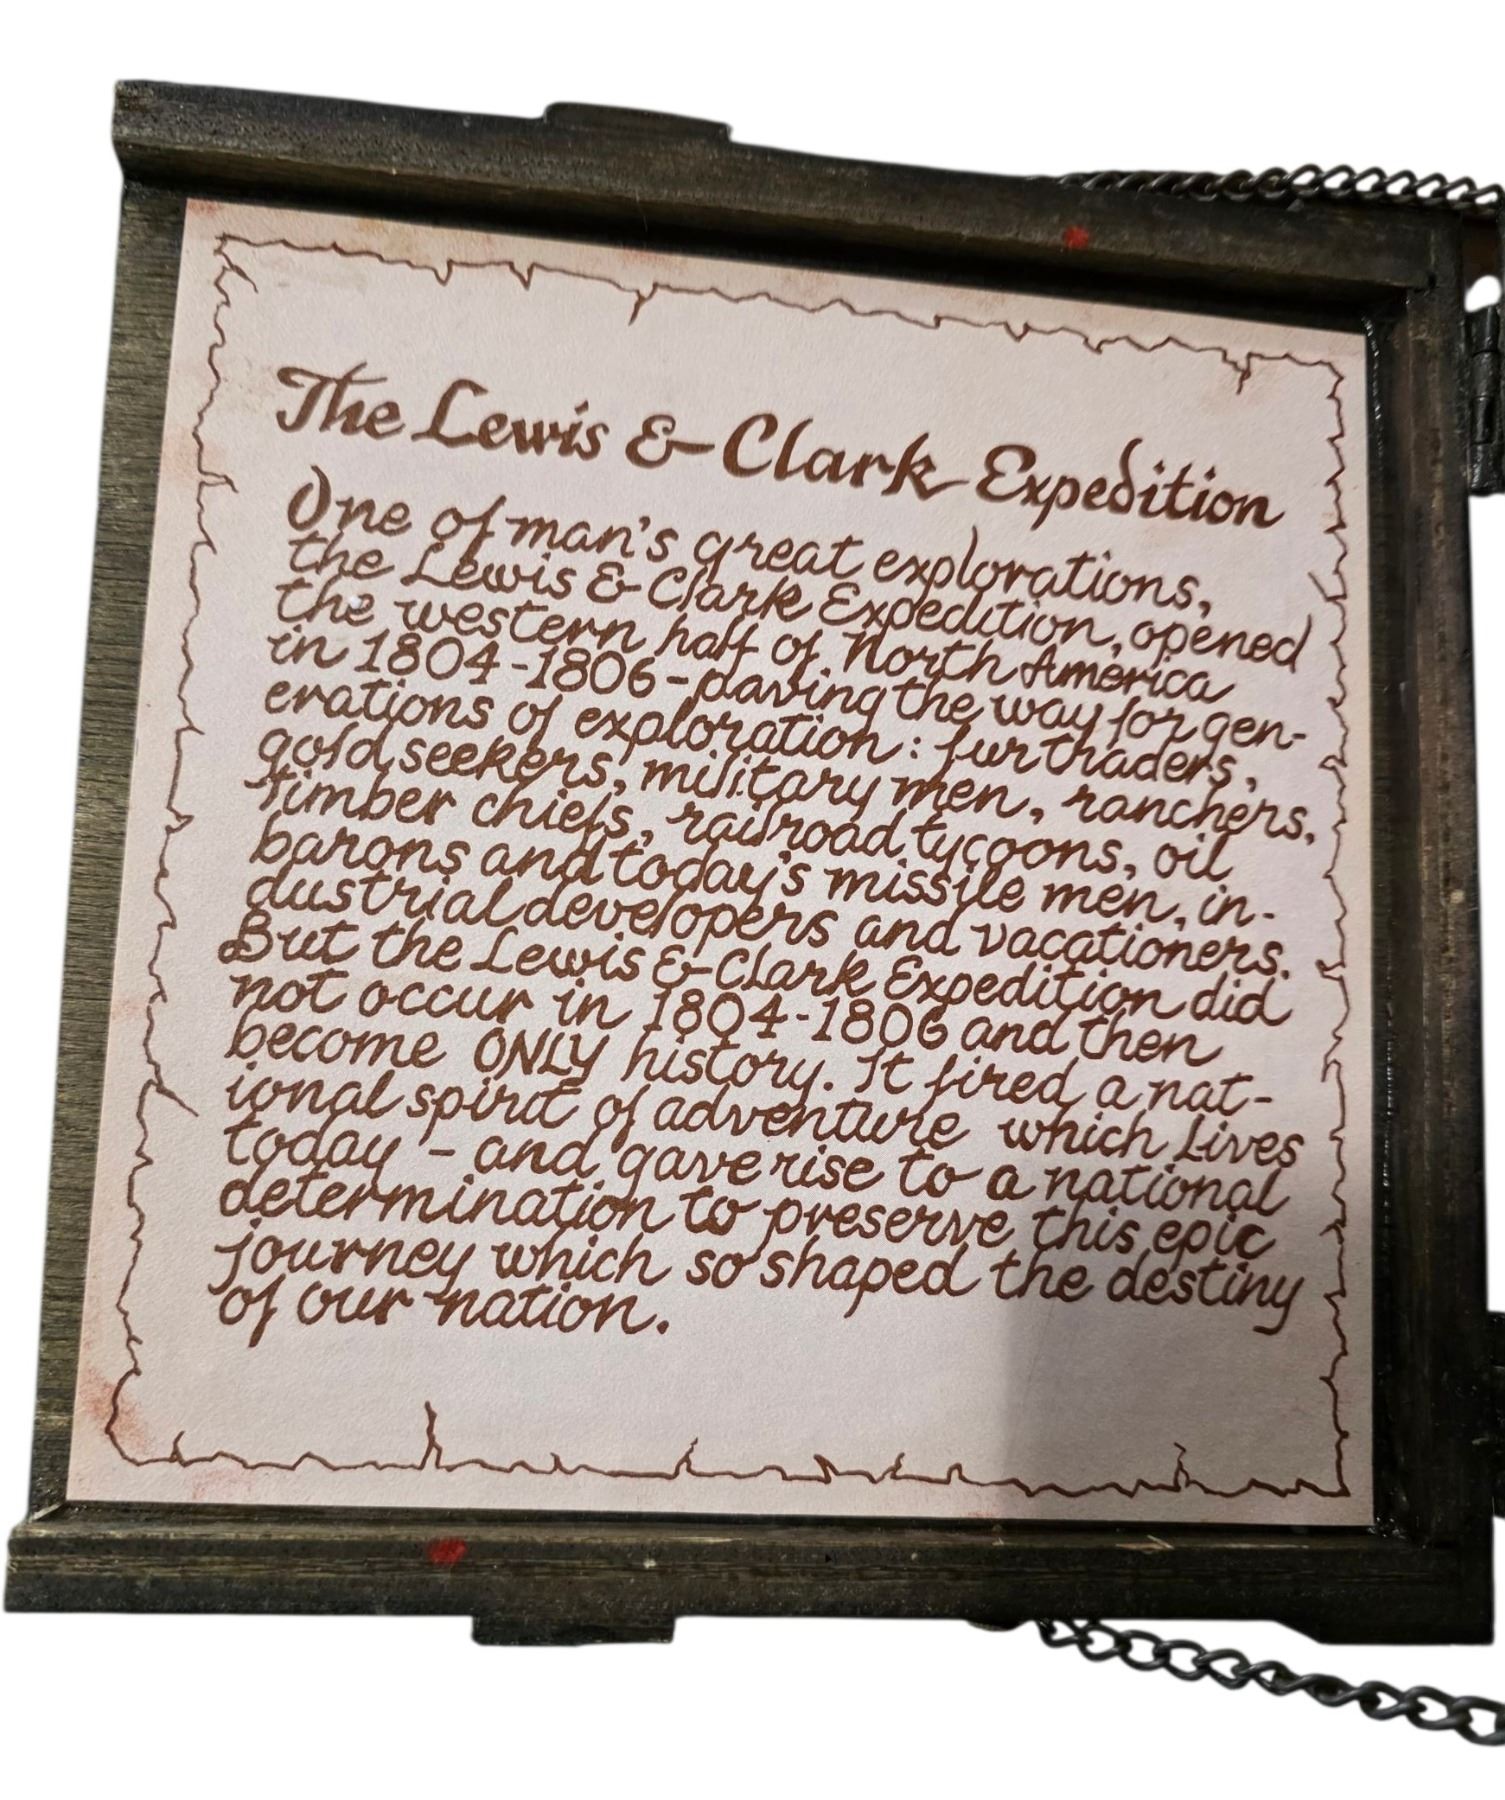 The Lewis & Clark Expedition
One of man's great explorations,
the Lewis & Clark Expedition, opened
the western half of North America
in 1804-1806-paving the way for gen-
erations of exploration: fur traders,
gold seekers, military men, ranchers,
timber chiefs, railroad tycoons, oil
barons and today's missile men, in-
dustrial developers and vacationers.
But the Lewis & Clark Expedition did
not occur in 1804-1806 and then
become ONLY history. It fired a nat-
ional spirit of adventure which lives
today - and gave rise to a national
determination to preserve this epic
journey which so shaped the destiny
of our nation.